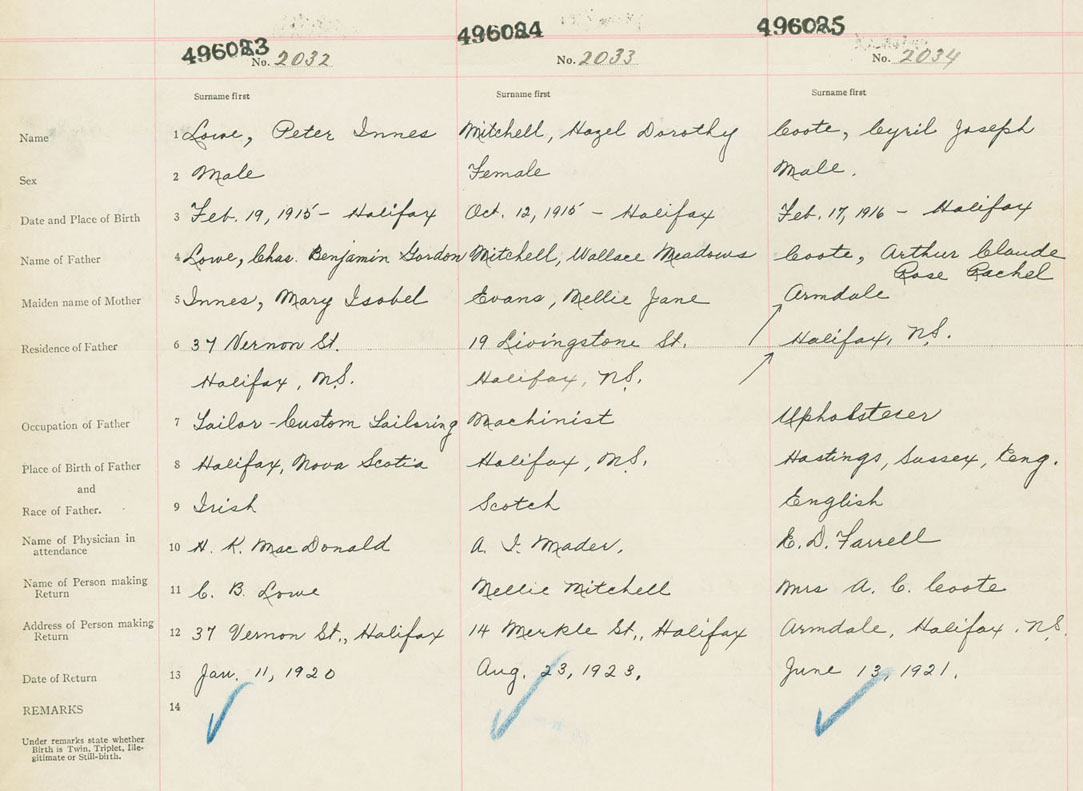 496083 496084 496085
No. 2032 No. 2033 No. 2034
Surname first Surname first Surname first
Name 1 Lowe, Peter Innes Mitchell, Hazel Dorothy Coote, Cyril Joseph
Sex 2 Male Female Male.
Date and Place of Birth 3 Feb. 19, 1915 - Halifax Oct. 12, 1915 - Halifax Feb. 17, 1916 - Halifax
Name of Father 4 Lowe, Chas. Benjamin Gordon Mitchell, Wallace Meadows Coote, Arthur Claude
Rose Rachel
Maiden name of Mother 5 Innes, Mary Isobel Evans, Nellie Jane Armdale
Residence of Father 6 37 Vernon St. 19 Livingstone St. Halifax, N.S.
Halifax, N.S. Halifax, N.S.
Occupation of Father 7 Tailor - Custom Tailoring Machinist Upholsterer
Place of Birth of Father 8 Halifax, Nova Scotia Halifax, N.S. Hastings, Sussex, Eng.
and
Race of Father. 9 Irish Scotch English
Name of Physician in
attendance 10 H. K. MacDonald A. I. Mader. E. D. Farrell
Name of Person making
Return 11 C. B. Lowe Nellie Mitchell Mrs A. C. Coote
Address of Person making
Return 12 37 Vernon St., Halifax 14 Merkle St., Halifax Armdale, Halifax. N.S.
Date of Return 13 Jan. 11, 1920 Aug. 23, 1923. June 13, 1921.
REMARKS 14
Under remarks state whether
Birth is Twin, Triplet, Ille-
gitimate or Still-birth.